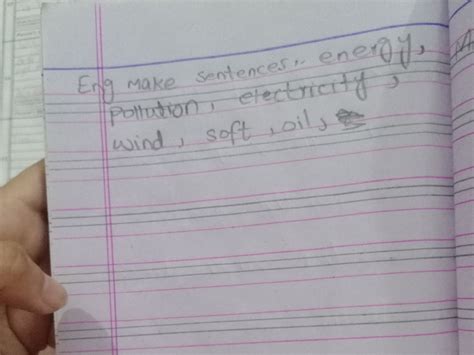 Eng make sentences:- energy,
Pollution, electricity,
wind, soft, oil,